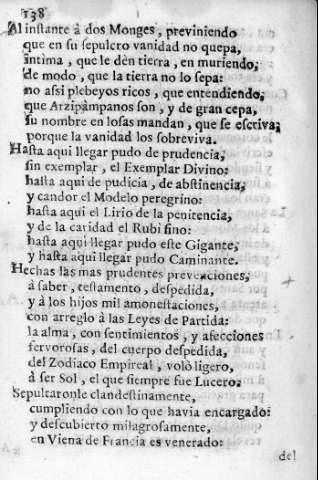 138
Al instante à dos Monges, previniendo
que en su sepulcro vanidad no quepa,
intima, que le dèn tierra, en muriendo,
de modo, que la tierra no lo sepa:
no assi plebeyos ricos, que entendiendo,
que Arzipàmpanos son, y de gran cepa,
su nombre en losas mandan, que se escriva,
porque la vanidad los sobreviva.
Hasta aqui llegar pudo de prudencia,
sin exemplar, el Exemplar Divino:
hasta aqui de pudicia, de abstinencia,
y candor el Modelo peregrino:
hasta aqui el Lirio de la penitencia,
y de la caridad el Rubi fino:
hasta aqui llegar pudo este Gigante,
y hasta aqui llegar pudo Caminante.
Hechas las mas prudentes prevenciones,
à saber, testamento, despedida,
y à los hijos mil amonestaciones,
con arreglo à las Leyes de Partida:
la alma, con sentimientos, y afecciones
fervorosas, del cuerpo despedida,
del Zodiaco Empireal, volò ligero,
à ser Sol, el que siempre fue Lucero.
Sepultaronle clandestinamente,
cumpliendo con lo que havia encargado:
y descubierto milagrosamente,
en Viena de Francia es venerado:
del